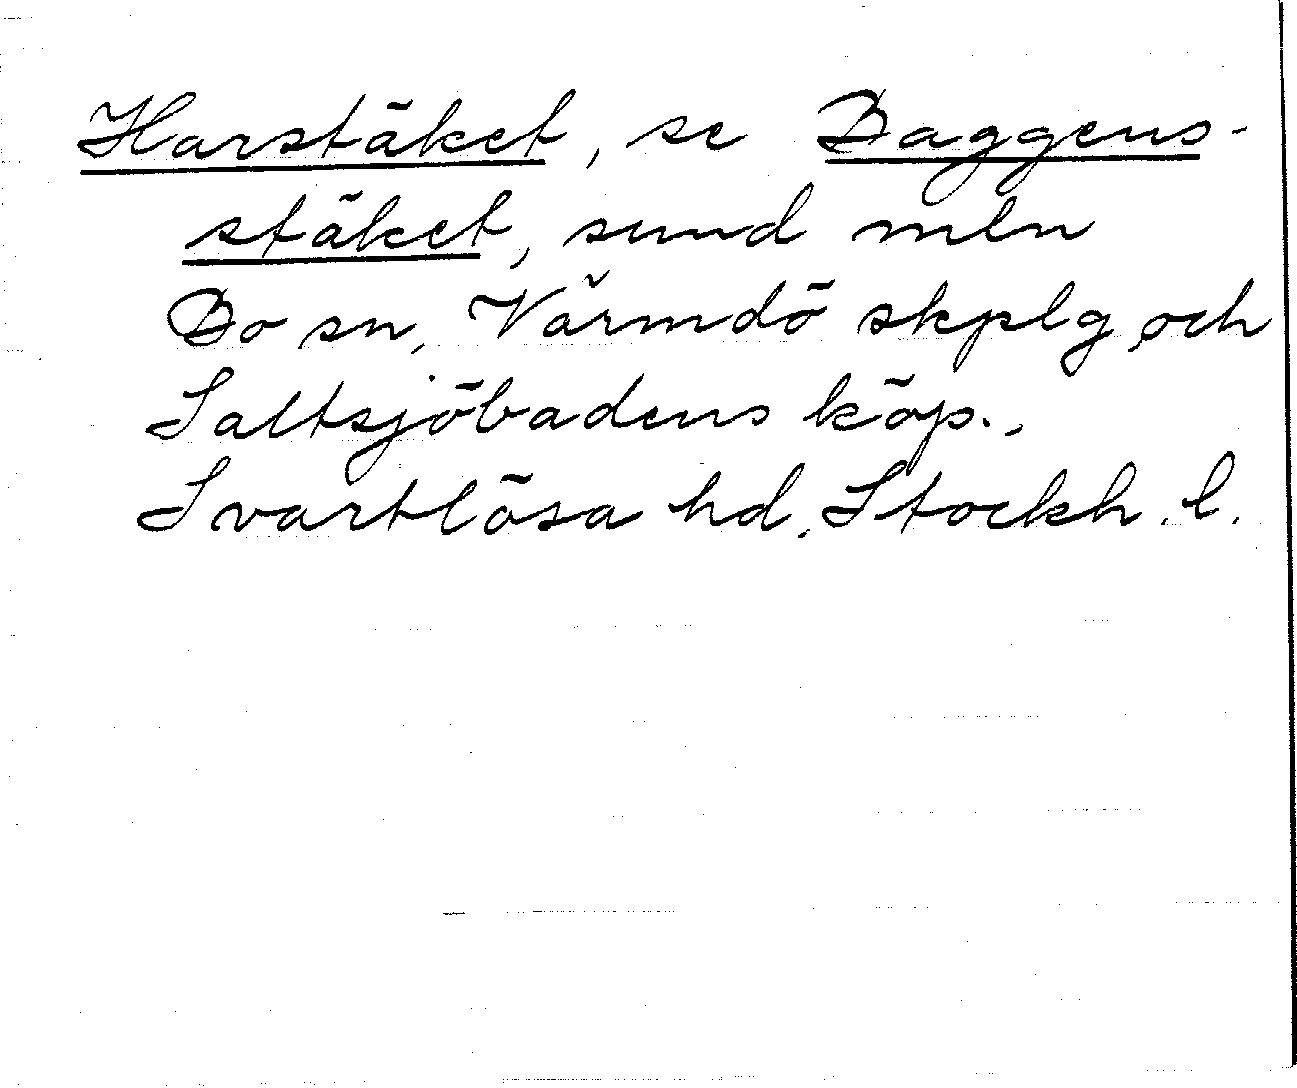 Harstäket, se Baggens-
stäket, sund mln
Bo sn, Värmdö skplg, och
Saltsjöbadens köp.,
Svartlösa hd, Stockh. l.